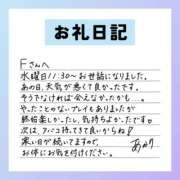 お礼日記
Fさんへ
水曜日11:30〜お世話になりました。
あの日、天気が悪くて良かったです。
そうでなければ会えなかったかも、。
やったことのないプレイもありましたが
終始楽しかったし、気持ちよかったです。
次は、アハ二コ持ってきて良いからね!
寒い日が続いてますので、
お体にお気を付けください。
あかり